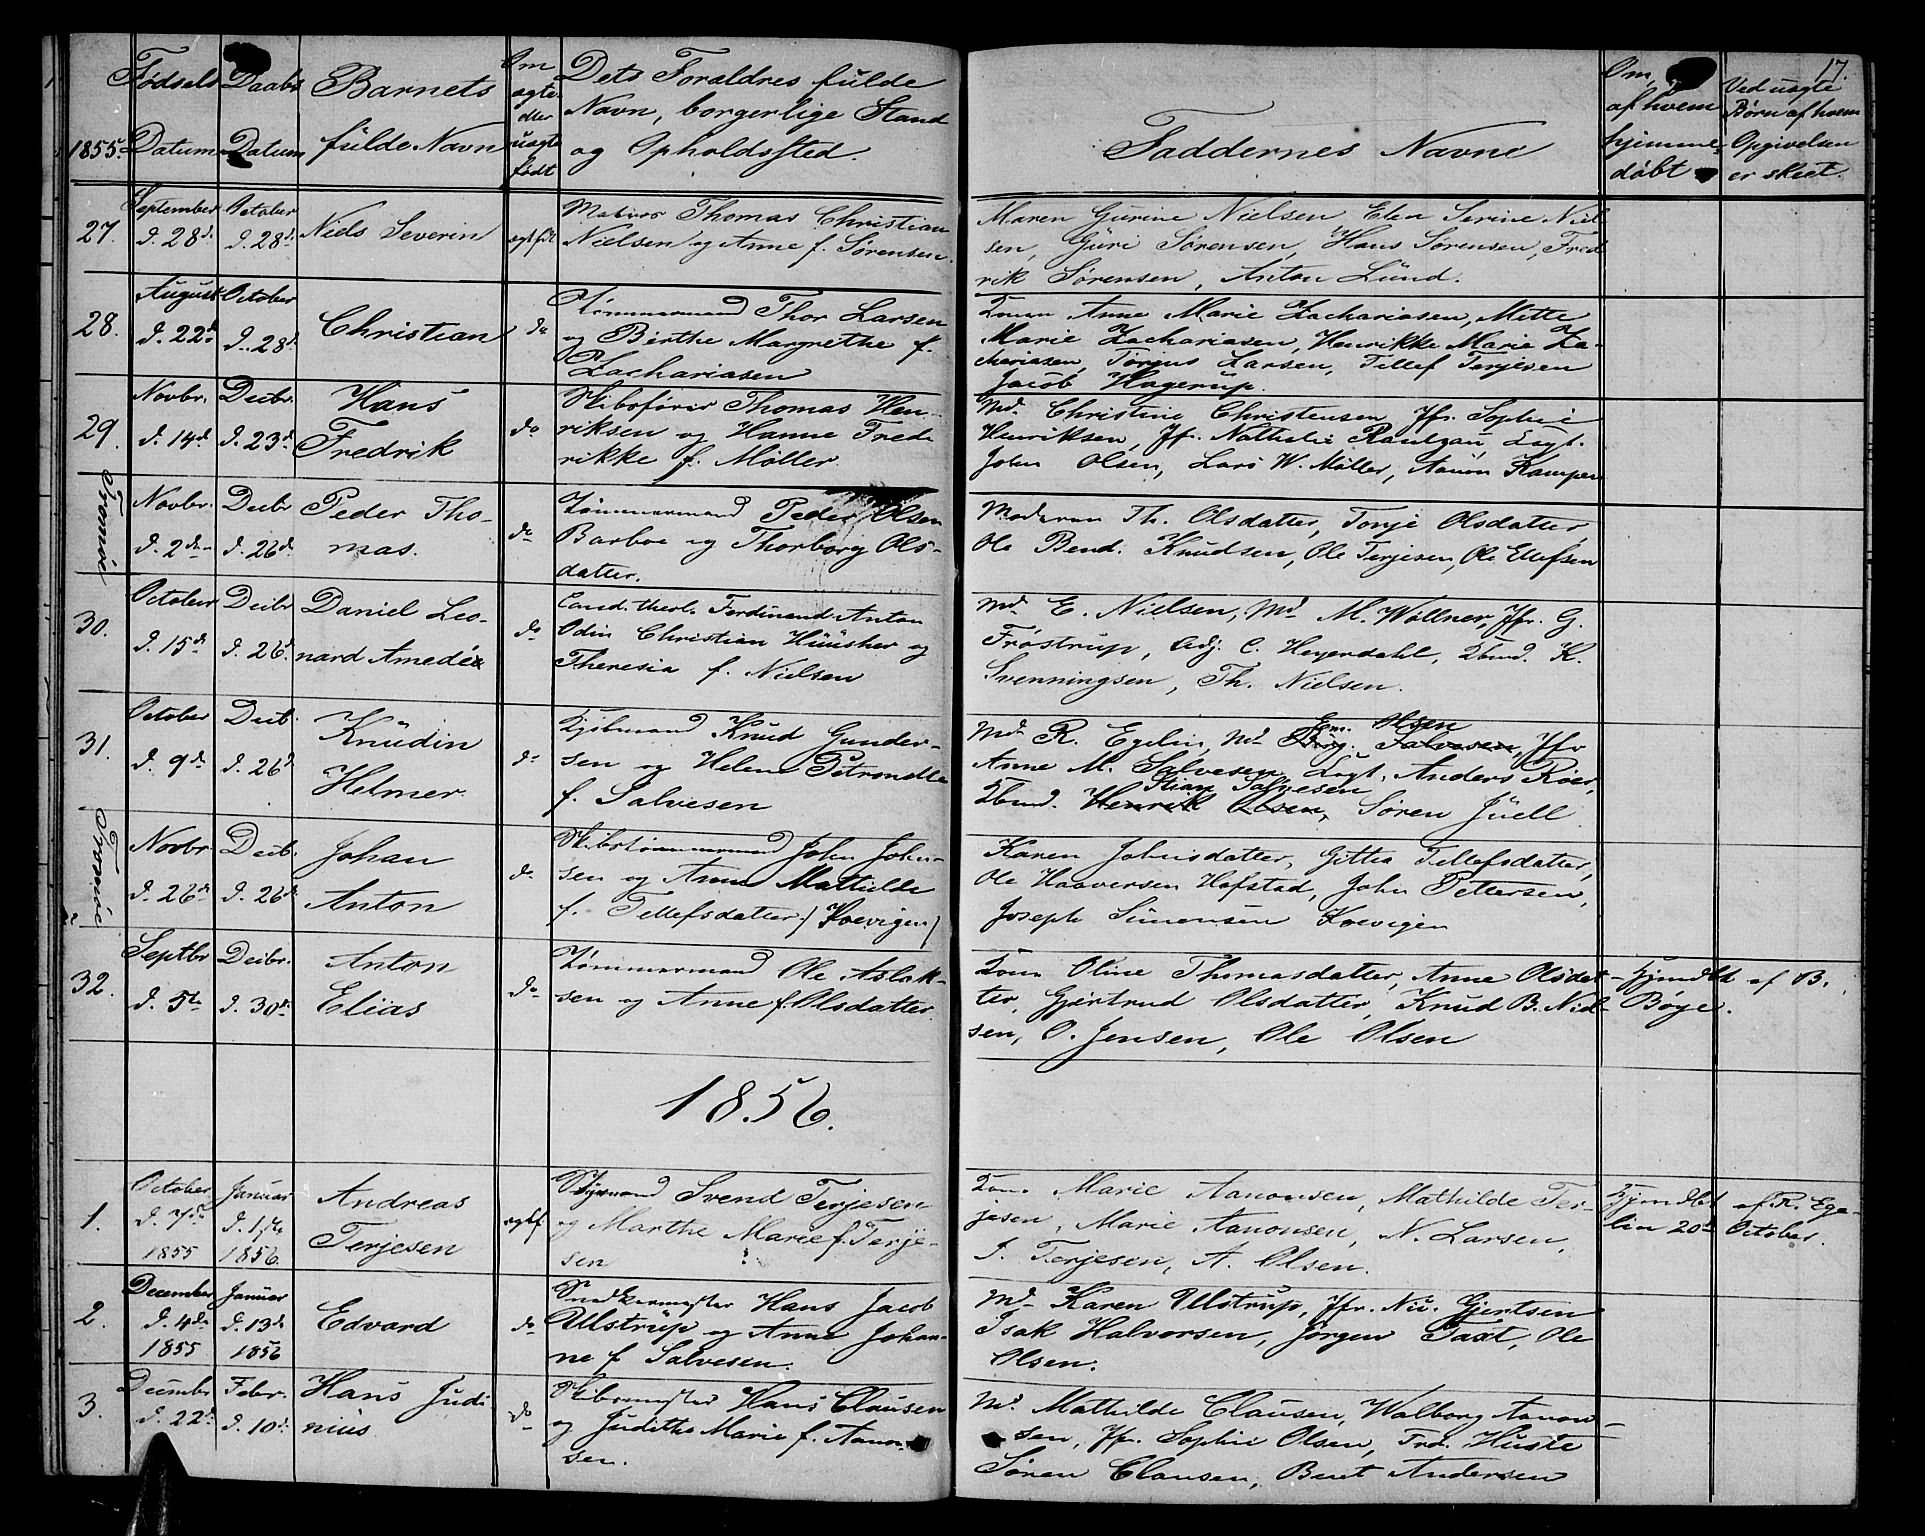 17.
1855.
Fødsels Datum
Daabs Datum
Barnets fulde Navn
Om ægte eller uægte født
Dets Forældres fulde
Navn, borgerlige Stand
og Opholdssted.
Faddernes Navne
Om, af hvem hjemme- døbt
Ved uægte
Børn af hvem
Opgivelsen
er skeet.
27. September d. 28de October d. 28de Niels Severin ægtfdt
Matros Thomas Christian
Nielsen og Anne f. Sørensen.
Maren Gurine Nielsen, Elen Serine Niel-
sen, Guri Sørensen, Hans Sørensen, Fred
rik Sørensen, Anton Lund.
28. August d. 22de October d. 28de Christian do
Tømmermand Thor Larsen
og Birthe Margrethe f.
Zachariasen
Konen Anne Marie Zachariasen, Mette
Marie Zachariasen, Henrikke Marie Za-
chariasen, Tørjus Larsen, Tellef Terjesen
Jacob Hagerup.
29. Novbr. d. 14de Decbr. d. 23de Hans Fredrik do
Skibsfører Thomas Hen-
riksen og Hanne Fred-
rikke f. Møller.
Md. Christine Christensen, Jfr. Sophie
Henriksen, Jfr. Nathalie
John Olsen, Lars W. Møller, Aanon Kampen
Tromøe
Novbr. d. 2den Decbr d. 26de Peder Tho- mas. do
Tømmermand Peder Olsen
Barboe og Thorborg Ols-
datter.
Moderen Th. Olsdatter, Tonje Olsdatter,
Ole Bend. Knudsen, Ole Terjesen, Ole Ellefsen
30. October d. 15de Decbr d. 26de Daniel Leo- nard Amedéx do
Cand. theol. Ferdinand Anton
Odin Christian og
Theresia f. Nielsen
Md. E. Nielsen, Md. M. Wøllner, Jfr. G.
Frøstrup, Adj. C. Heyerdahl, Kbmd. K.
Svenningsen, Th. Nielsen.
31. October d. 9de Decb. d. 26de Knudin Helmer. do
Kjøbmand Knud Gunder-
sen og Helene Petronelle
f. Salvesen
Em. Olsen
Md. R. Egelin, Md. Salvesen, Jfr
Anne M. Salvesen, Anders Røer,
Stian Salvesen
Kbmd. Henrik Olsen, Søren Juell
Tromøe
Novbr. d. 26de Decb. d. 26de Johan Anton do
Skibstømmermand John John-
sen og Anne Mathilde
f. Tellefsdatter (Hovigen)
Karen Johnsdatter, Githa Tellefsdatter,
Ole Haaversen Hofstad, John Pettersen,
Joseph Simensen
32. Septbr d. 5te Decbr. d. 30de Anton Elias do
Tømmermand Ole Aslak-
sen og Anne f. Olsdatter
Kone Oline Thomasdatter, Anne Olsdat-
ter, Gjertrud Olsdatter, Knud B. Niel-
sen, O. Jensen, Ole Olsen
Hjmdbt af B.
Bøye.
1856.
1. October d. 7de 1855 Januar d. 1ste 1856. Andreas Terjesen ægtf
Styrmand Svend Terjesen
og Marthe Marie f. Terje-
sen
Kone Marie Aanonsen, Mathilde Ter-
jesen, Marie Aanonsen, N. Larsen,
J. Terjesen, A. Olsen.
Hjmdbt af R. Ege-
lin 20de October.
2. December d. 4de 1855 Januar d. 13de 1856 Edvard do
Snedkermester Hans Jacob
Ullstrup og Anne Johan-
ne f Salvesen.
Md. Karen Ullstrup, Jfr. Gjertsen
Isak Halvorsen, Jørgen Taxt, Ole
Olsen.
3. Decembr d. 22de Febr. d. 10de Hans Judi nius do
Skibsmester Hans Clausen
og Judithe Marie f. Aanon-
sen.
Md. Mathilde Clausen, Walborg Aanon-
sen, Jfr. Sophie Olsen, Frd. Huste
Søren Clausen, Bent Andersen